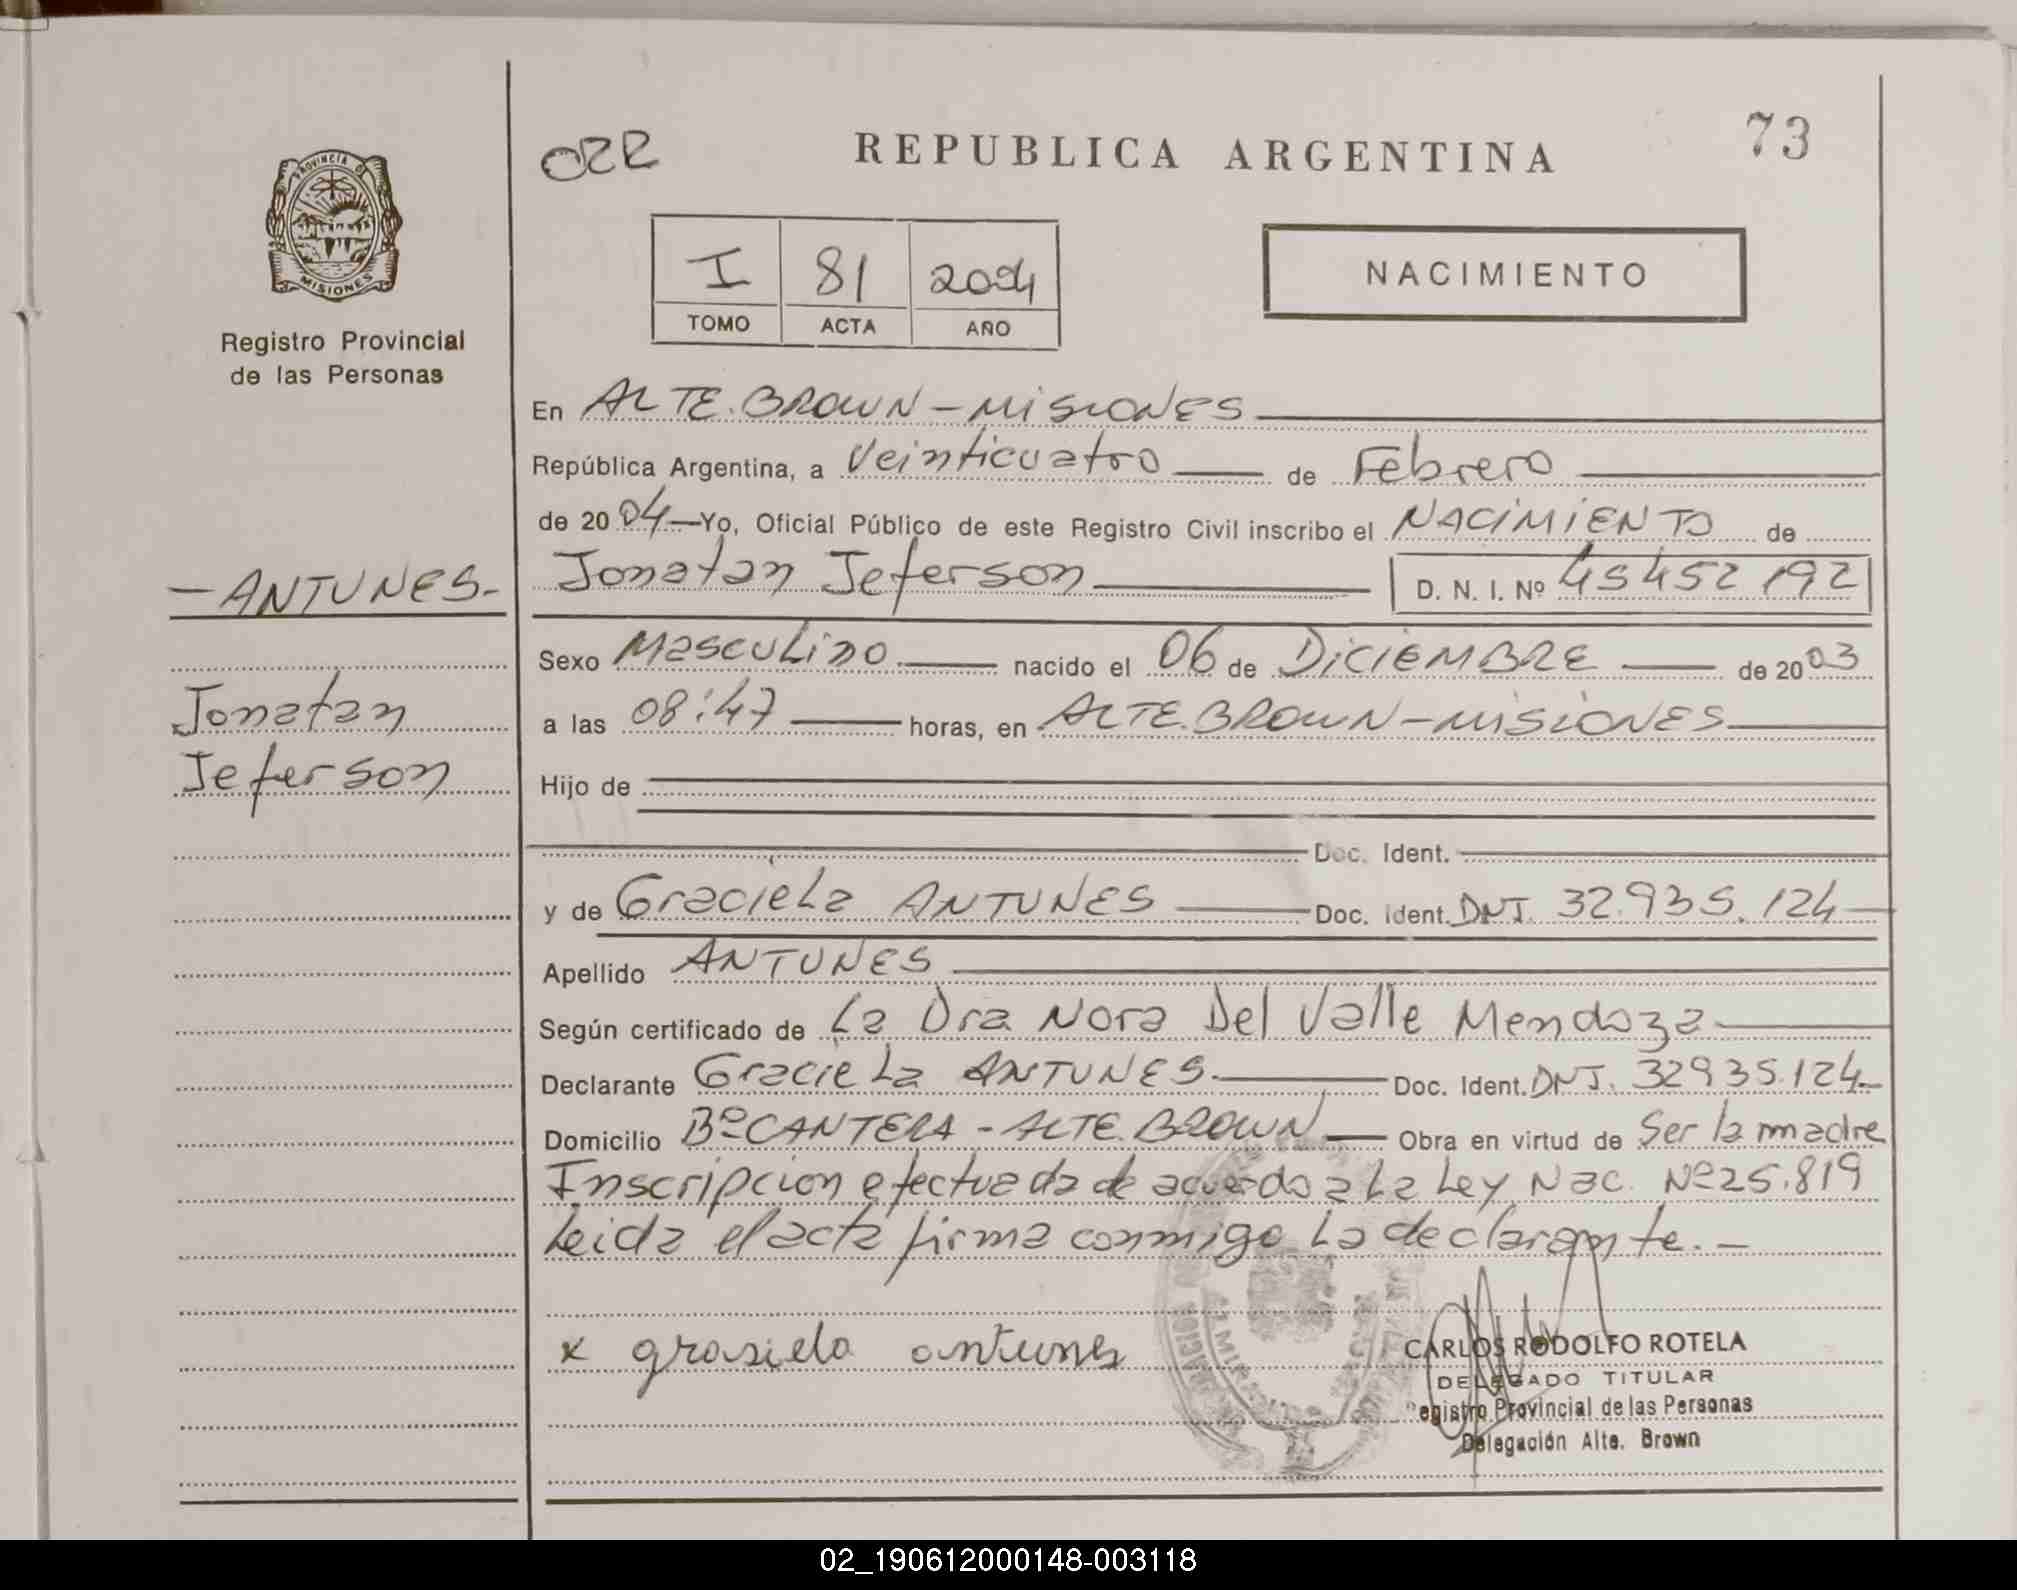 022
REPUBLICA ARGENTINA
73
PROVINCIA DE
MISIONES
Registro Provincial
de las Personas
I 81 2004
TOMO ACTA AÑO
NACIMIENTO
En ALTE. BROWN - MISIONES
República Argentina, a Veinticuatro de Febrero
de 2004 Yo, Oficial Público de este Registro Civil inscribo el NACIMIENTO de
Jonatan Jeferson D. N. I. Nº 45452192
- ANTUNES -
Jonatan
Jeferson
Sexo Masculino nacido el 06 de DICIEMBRE de 2003
a las 08:47 horas, en ALTE. BROWN - MISIONES
Hijo de
Doc. Ident.
y de Graciela ANTUNES Doc. Ident. DNI. 32.935.124
Apellido ANTUNES
Según certificado de La Dra Nora Del Valle Mendoza
Declarante Graciela ANTUNES Doc. Ident. DNI. 32935.124
Domicilio Bº CANTERA - ALTE. BROWN Obra en virtud de Ser la madre
Inscripcion efectuada de acuerdo a La Ley Nac. Nº 25.819
Leida el acta firma conmigo La declarante. -
x grasiela antunes
CARLOS RODOLFO ROTELA
DELEGADO TITULAR
Registro Provincial de las Personas
Delegación Alte. Brown
02_190612000148-003118